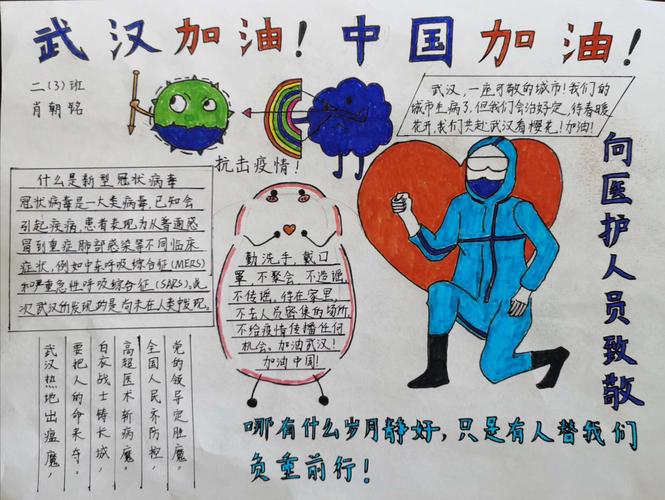 武汉加油！中国加油！
二（3）班
肖朝铭
抗击疫情！
武汉，一座可敬的城市！我们的
城市生病了，但我们会治好它，待春暖
花开，我们共赴武汉看樱花！加油！
什么是新型冠状病毒
冠状病毒是一大类病毒，已知会
引起疾病，患者表现为从普通感
冒到重症肺部感染等不同临床
症状，例如中东呼吸综合征（MERS）
和严重急性呼吸综合征（SARS）。此
次武汉所发现的是尚未在人类发现。
勤洗手，戴口
罩，不聚会，不造谣，
不传谣，待在家里，
不去人员密集的场所，
不给疫情传播任何
机会。加油武汉！
加油中国！
向医护人员致敬
武汉热地出瘟魔，
要把人的命来夺。
白衣战士铸长城，
高超医术斩病魔。
全国人民齐防控，
党的领导定胜魔。
哪有什么岁月静好，只是有人替我们
负重前行！